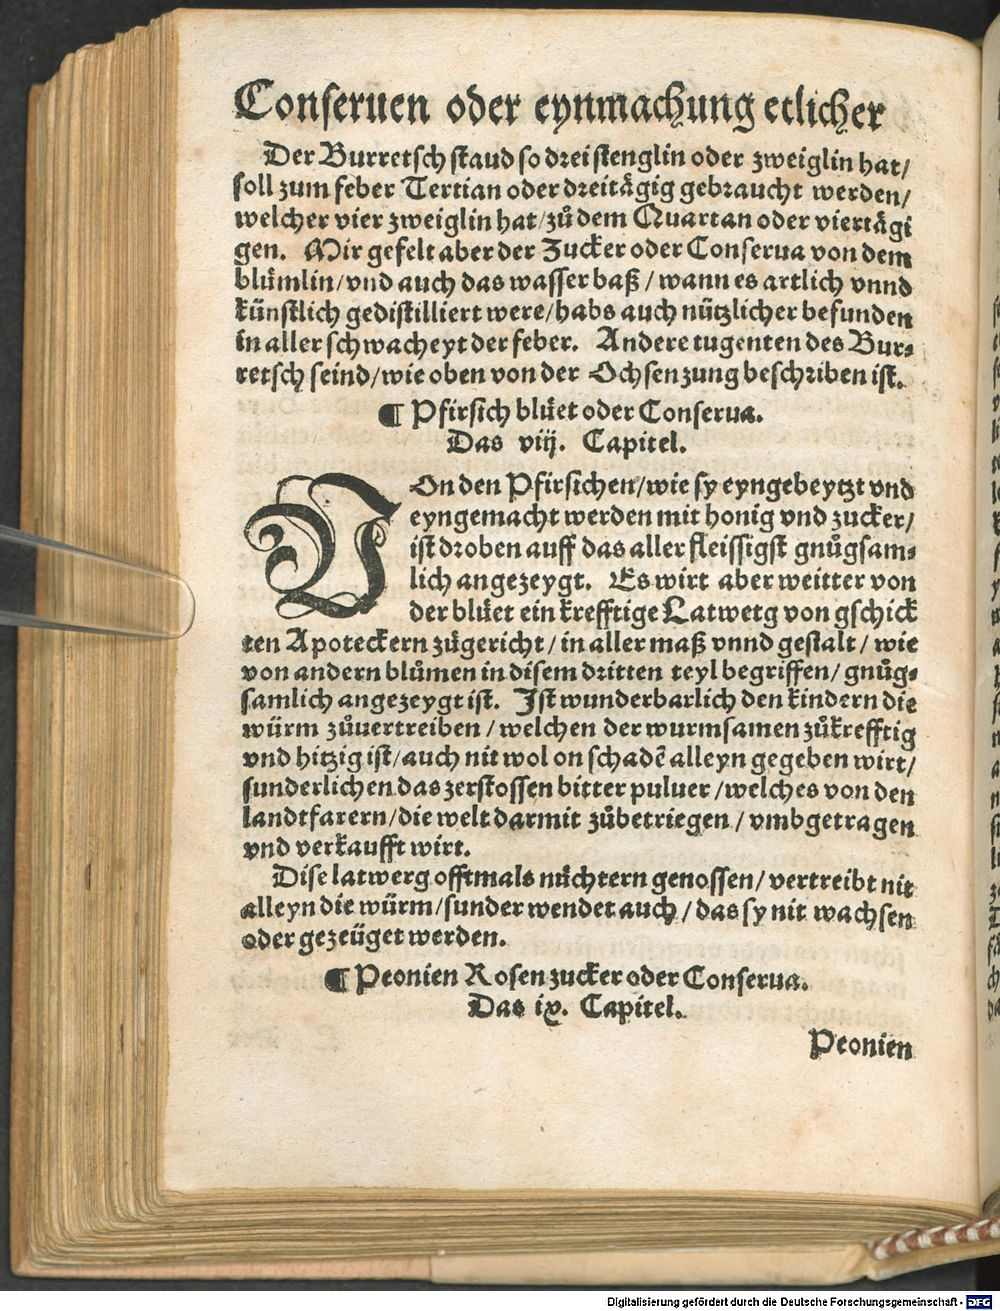 Conseruen oder eynmachung etlicher
Der Burretsch staud so drei stenglin oder zweiglin hat/
soll zum feber Tertian oder dreitaͤgig gebraucht werden/
welcher vier zweiglin hat/zuͦ dem Quartan oder viertaͤgi
gen. Mir gefelt aber der Zucker oder Conserua von dem
bluͤmlin/vnd auch das wasser baß/wann es artlich vnnd
kuͤnstlich gedistilliert were/habs auch nuͤtzlicher befunden
in aller schwacheyt der feber. Andere tugenten des Bur⸗
retsch seind/wie oben von der Ochsenzung beschriben ist.
¶ Pfirsich bluͤet oder Conserua.
Das viij. Capitel.
VOn den Pfirsichen/wie sy eyngebeytzt vnd
eyngemacht werden mit honig vnd zucker/
ist droben auff das aller fleissigst gnuͦgsam⸗
lich angezeygt. Es wirt aber weitter von
der bluͤet ein krefftige Latwerg von gschick
ten Apoteckern zuͦgericht/in aller maß vnnd gestalt/wie
von andern bluͦmen in disem dritten teyl begriffen/gnuͦg⸗
samlich angezeygt ist. Ist wunderbarlich den kindern die
wuͤrm zuͦuertreiben/welchen der wurmsamen zuͦ krefftig
vnd hitzig ist/auch nit wol on schadē alleyn gegeben wirt/
sunderlichen das zerstossen bitter puluer/welches von den
landtfarern/die welt darmit zuͦ betriegen/vmbgetragen
vnd verkaufft wirt.
Dise latwerg offtmals nuͤchtern genossen/vertreibt nit
alleyn die wuͤrm/sunder wendet auch/das sy nit wachsen
oder gezeuͤget werden.
¶ Peonien Rosenzucker oder Conserua.
Das ix. Capitel.
Peonien
Digitalisierung gefördert durch die Deutsche Forschungsgemeinschaft - DFG